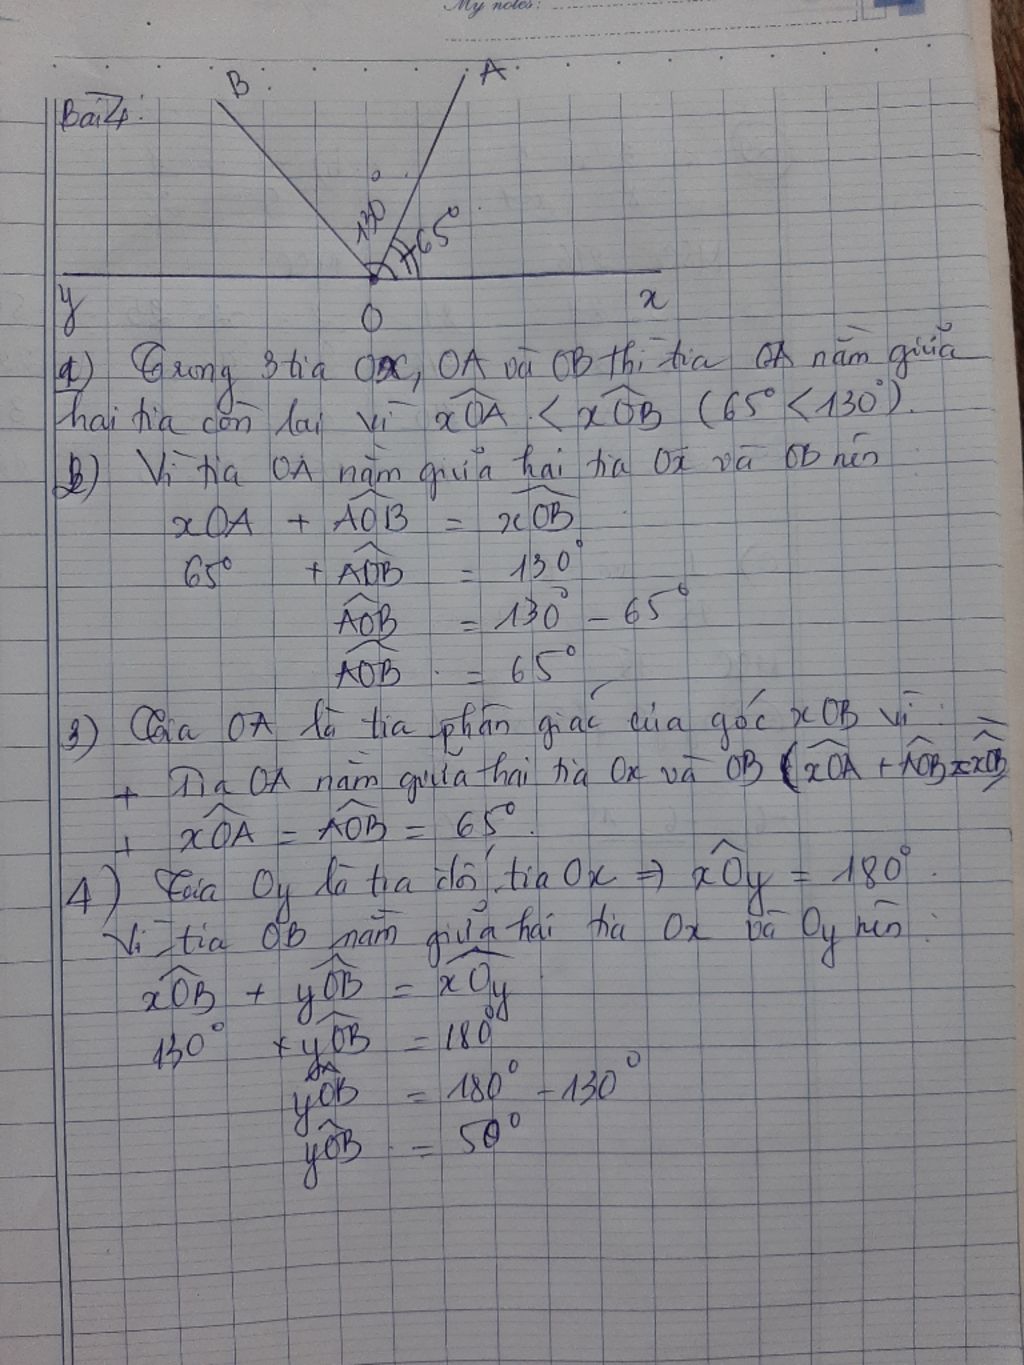 My notes:
B
A
Bài 4:
130°
65°
y
O
x
1) Trong 3 tia Ox, OA và OB thì tia OA nằm giữa
hai tia còn lại vì xOA < xOB (65° < 130°).
2) Vì tia OA nằm giữa hai tia Ox và OB nên
xOA + AOB = xOB
65° + AOB = 130°
AOB = 130° - 65°
AOB = 65°
3) Tia OA là tia phân giác của góc xOB vì:
+ Tia OA nằm giữa hai tia Ox và OB (xOA + AOB = xOB)
+ xOA = AOB = 65°.
4) Tia Oy là tia đối tia Ox => xOy = 180°.
Vì tia OB nằm giữa hai tia Ox và Oy nên:
xOB + yOB = xOy
130° + yOB = 180°
yOB = 180° - 130°
yOB = 50°